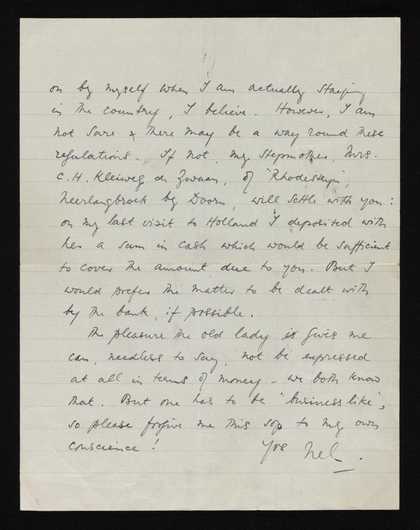 on by myself when I am actually staying
in the country, I believe. However, I am
not sure & there may be a way round these
regulations. If not, my stepmother, Mrs.
C. H. Kleiweg de Zwaan, of 'Rhodesteyn',
Neerlangbroek by Doorn, will settle with you:
on my last visit to Holland I deposited with
her a sum in cash which would be sufficient
to cover the amount due to you. But I
would prefer the matter to be dealt with
by the bank, if possible.
The pleasure the old lady gives me
can, needless to say, not be expressed
at all in terms of money - we both know
that. But one has to be 'businesslike',
so please forgive me this sop to my own
conscience!
Yrs Nel.